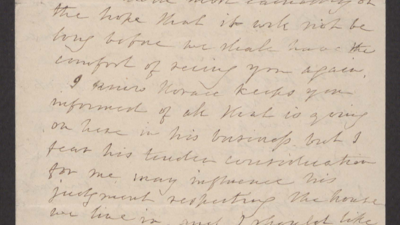 the hope that it will not be
long before we shall have the
comfort of seeing you again.
I Horace keeps you
informed of all that is going
on here in his business, but I
fear his tender consideration
for me may influence his
judgment respecting the house
we live in, and I should like